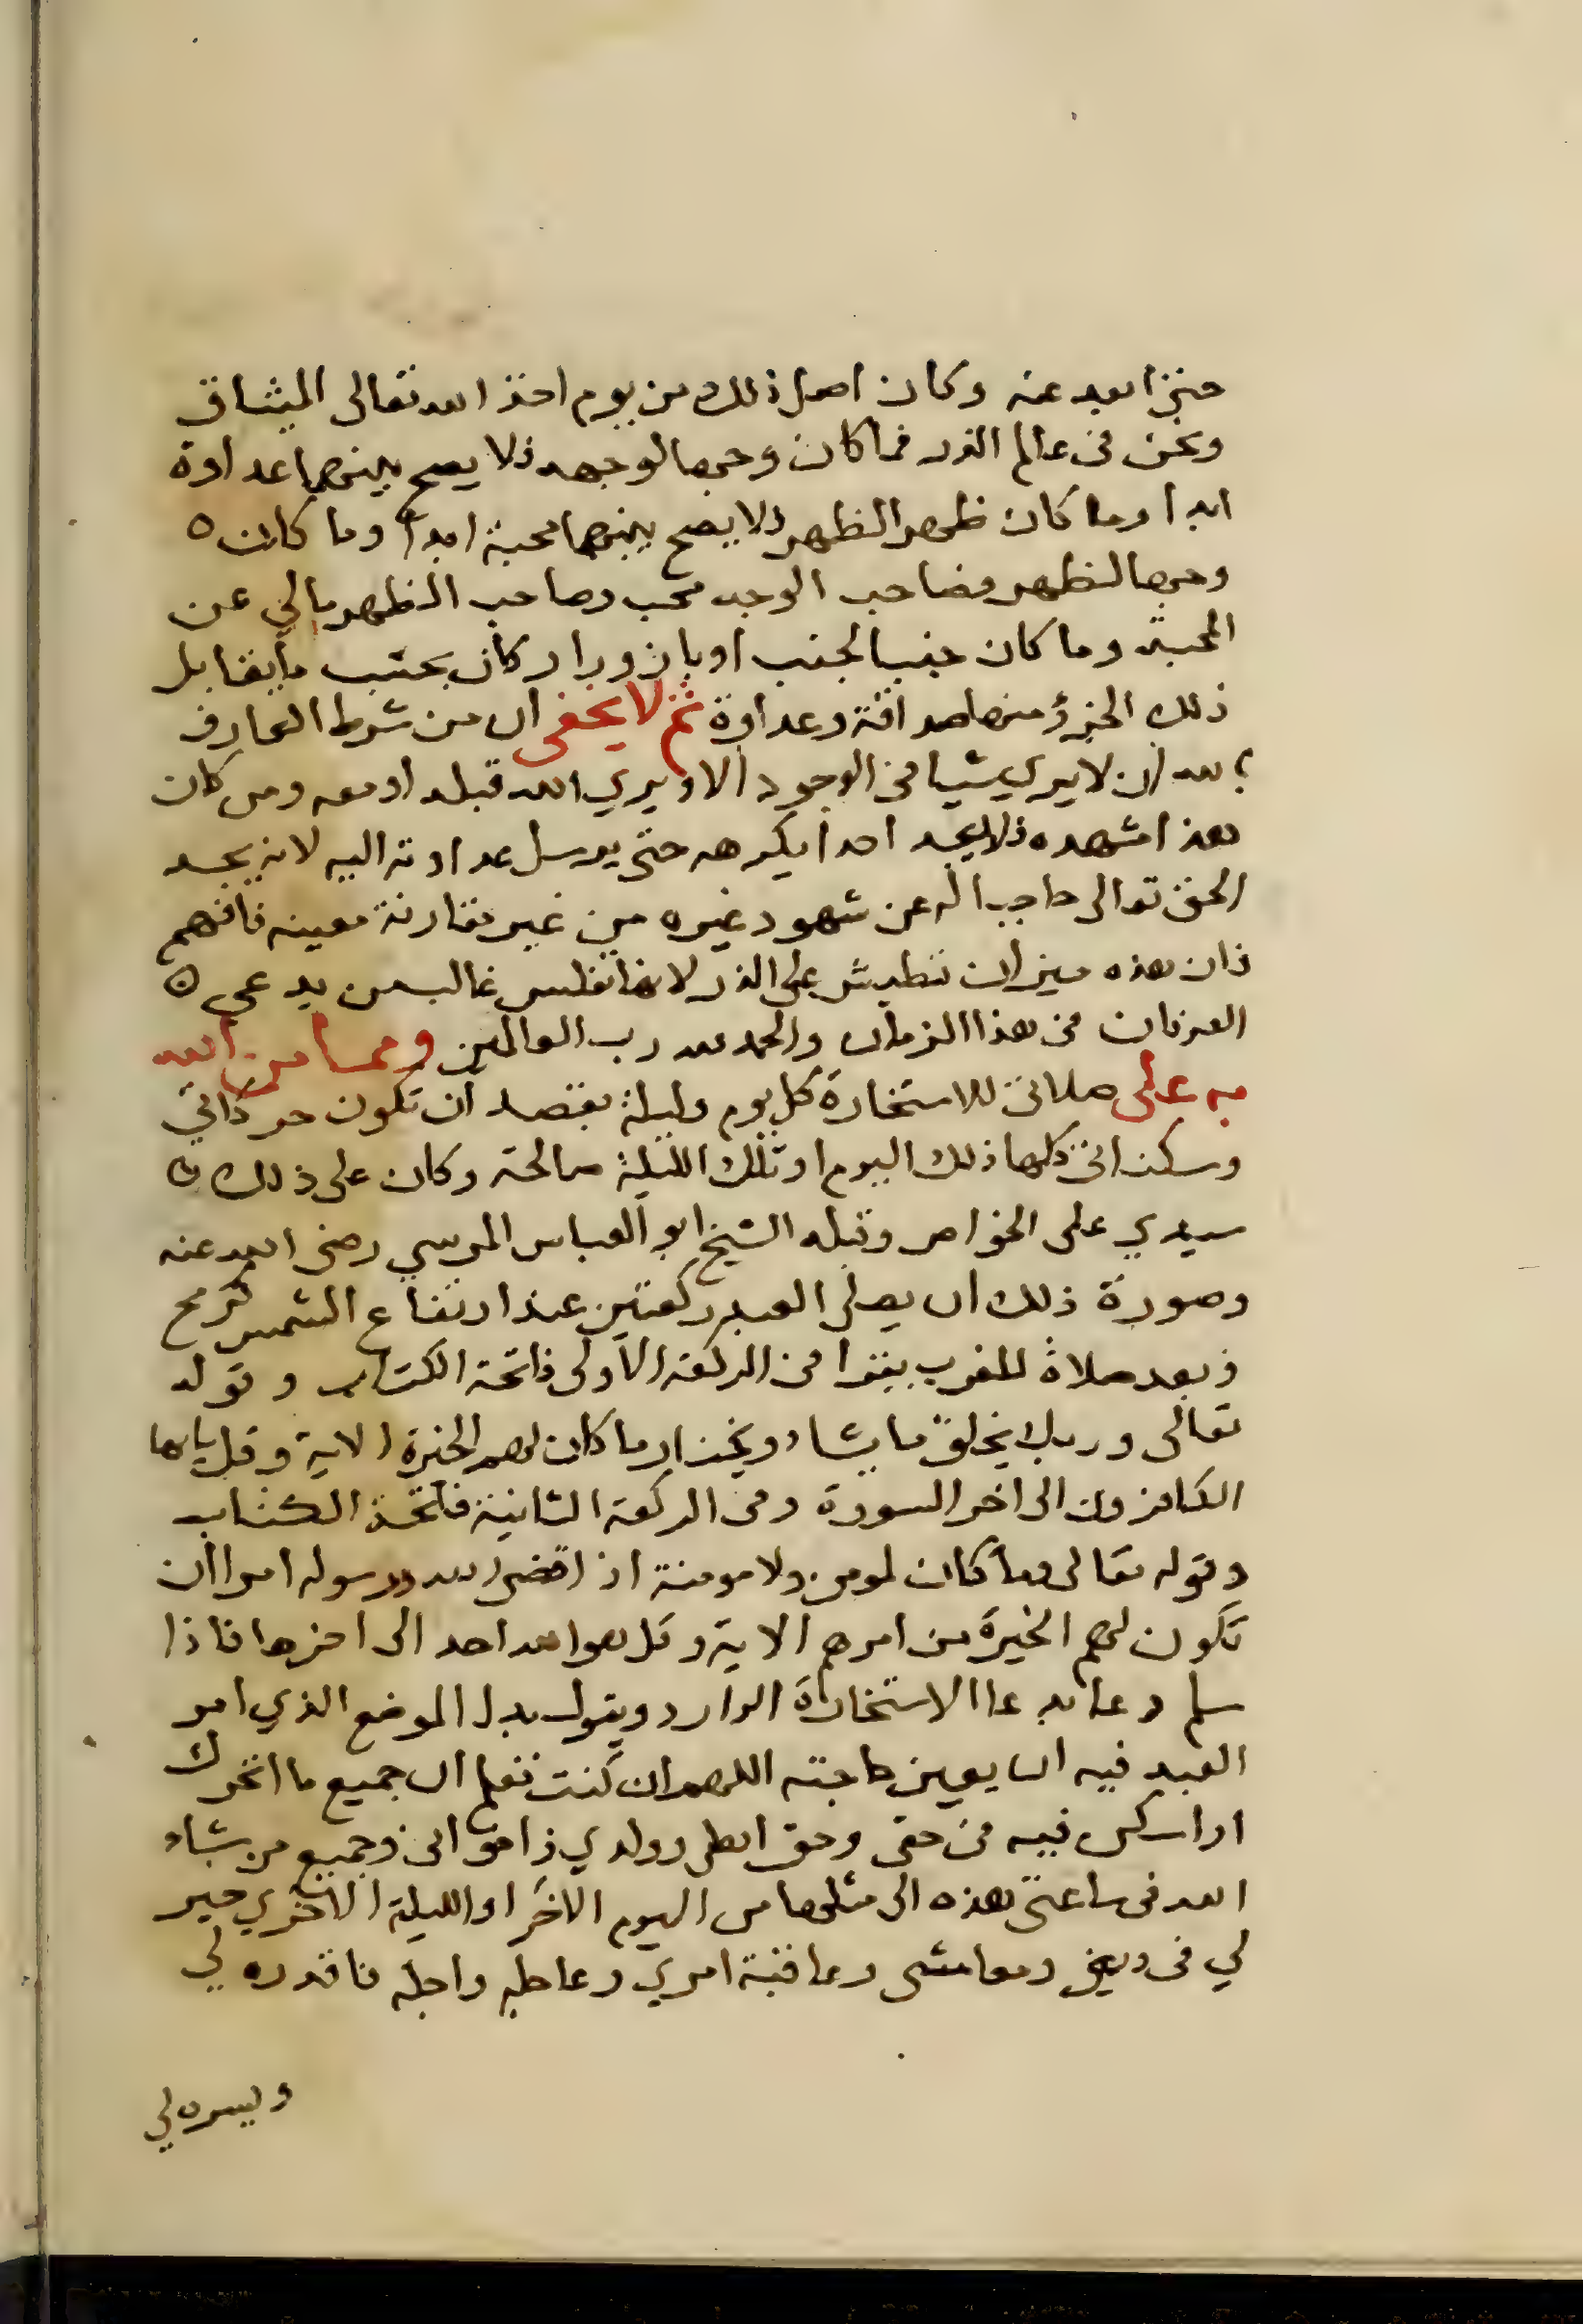 حتي ابعد عنه وكان اصل ذلك من يوم اخذ الله تعالى الميثاق
ونحن فى عالم الذر فما كان وجها لوجه فلا يصح بينهما عداوة
ابدا وما كان ظهرا لظهر فلا يصح بينهما محبة ابدا وما كان ه
وجها لظهر فصاحب الوجه محب وصاحب الظهر خالي عن
المحبة وما كان جنبا لجنب او بازورار كان بحسب ما يقابل
ذلك الجزؤ منهما صداقة وعداوة ثم لا يخفى ان من شرط العارف
بالله ان لا يري شيا فى الوجود الا ويري الله قبله او معه ومن كان
هذا مشهده فلا يجد احدا يكرهه حتى يرسل عداوته اليه لانه يجد
الحق تعالى حاجبا له عن شهود غيره من غير مقارنة معينه فافهم
فان هذه ميزان تطيش على الذر لانها تفلس غالب من يدعى ه
العرفان فى هذا الزمان والحمد لله رب العالمين ومما من الله
به على صلاتى للاستخارة كل يوم وليلة بقصد ان تكون حركاتي
وسكناتى كلها ذلك اليوم او تلك الليلة صالحة وكان على ذلك ه
سيدي على الخواص وقبله الشيخ ابو العباس المرسي رضى الله عنه
وصورة ذلك ان يصلى العبد ركعتين عند ارتفاع الشمس كرمح
وبعد صلاة المغرب يقرا فى الركعة الاولى فاتحة الكتاب وقوله
تعالى وربك يخلق ما يشاء ويختار ما كان لهم الخيرة الاية وقل يايها
الكافرون الى اخر السورة وفى الركعة الثانية فاتحة الكتاب
وقوله تعالى وما كان لمومن ولا مومنة اذا قضى الله ورسوله امرا ان
تكون لهم الخيرة من امرهم الاية وقل هو الله احد الى اخرها فاذا
سلم دعا بدعا الاستخارة الوارد ويقول بدل الموضع الذي امر
العبد فيه ان يعين حاجته اللهم ان كنت تعلم ان جميع ما اتحرك
او اسكن فيه فى حقى وحق اهلى وولدي واخوانى وجميع من شاء
الله فى ساعتى هذه الى مثلها من اليوم الاخر او الليلة الاخري خير
لي فى دينى ومعاشى وعاقبة امري وعاجله واجله فاقدره لي
ويسره لي